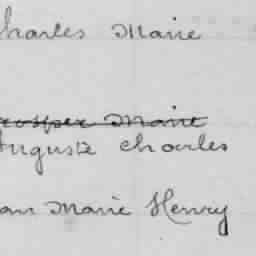 Charles Marie
Prosper Marie
Auguste Charles
Jean Marie Henry